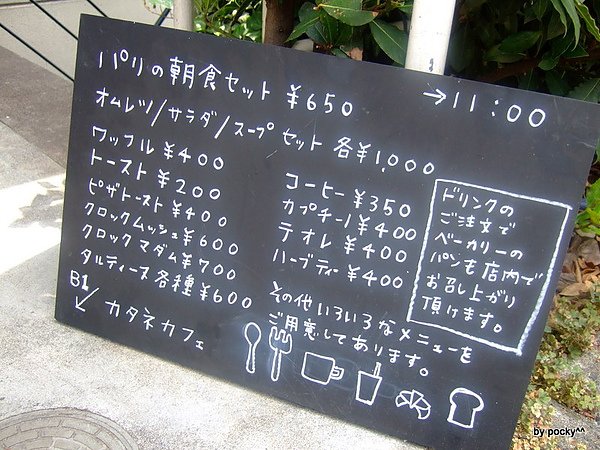 パリの朝食セット ¥650 →11:00
オムレツ/サラダ/スープセット 各¥1,000
ワッフル ¥400
トースト ¥200
ピザトースト ¥400
クロックムッシュ ¥600
クロックマダム ¥700
タルティーヌ各種 ¥600
コーヒー ¥350
カプチーノ ¥400
ラオレ ¥400
ハーブティー ¥400
ドリンクの
ご注文で
ベーカリーの
パンも店内で
お召し上がり
頂けます。
その他いろいろなメニューを
ご用意してあります。
B1
↙ カタネカフェ
by pocky^^